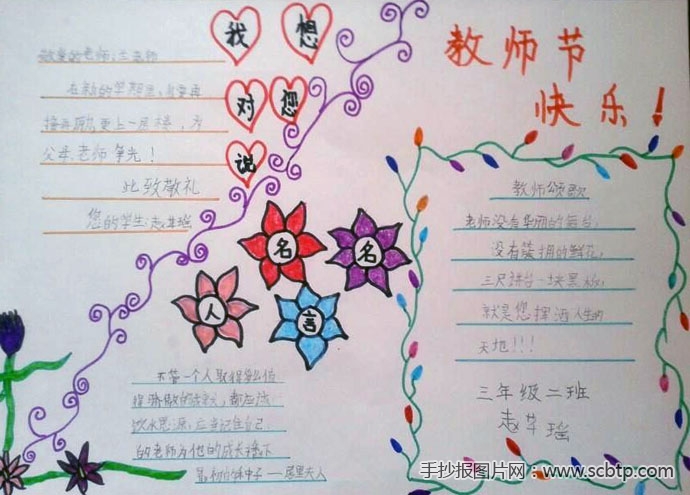 我想
对您
说
敬爱的老师:
在新的学期里,我要再
接再励,更上一层楼,为
父母、老师争光!
此致敬礼
您的学生:
教师节
快乐!
名名
人言
教师颂歌
老师没有华丽的舞台,
没有簇拥的鲜花,
三尺讲台一块黑板,
就是您挥洒人生的
天地!!!
三年级二班
不管一个人取得多么值
得骄傲的成绩,都应该
饮水思源,应当记住自己
的老师为他的成长播下
最初的种子——居里夫人
手抄报图片网:www.scbtp.com